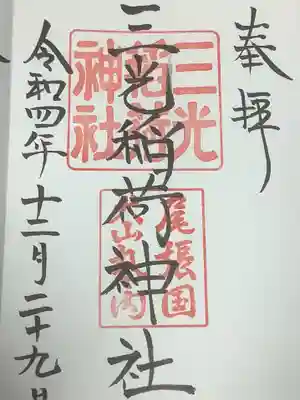 奉拝
三光稲荷神社
三光稲荷神社
尾張国犬山丸の内
令和四年十二月二十九日